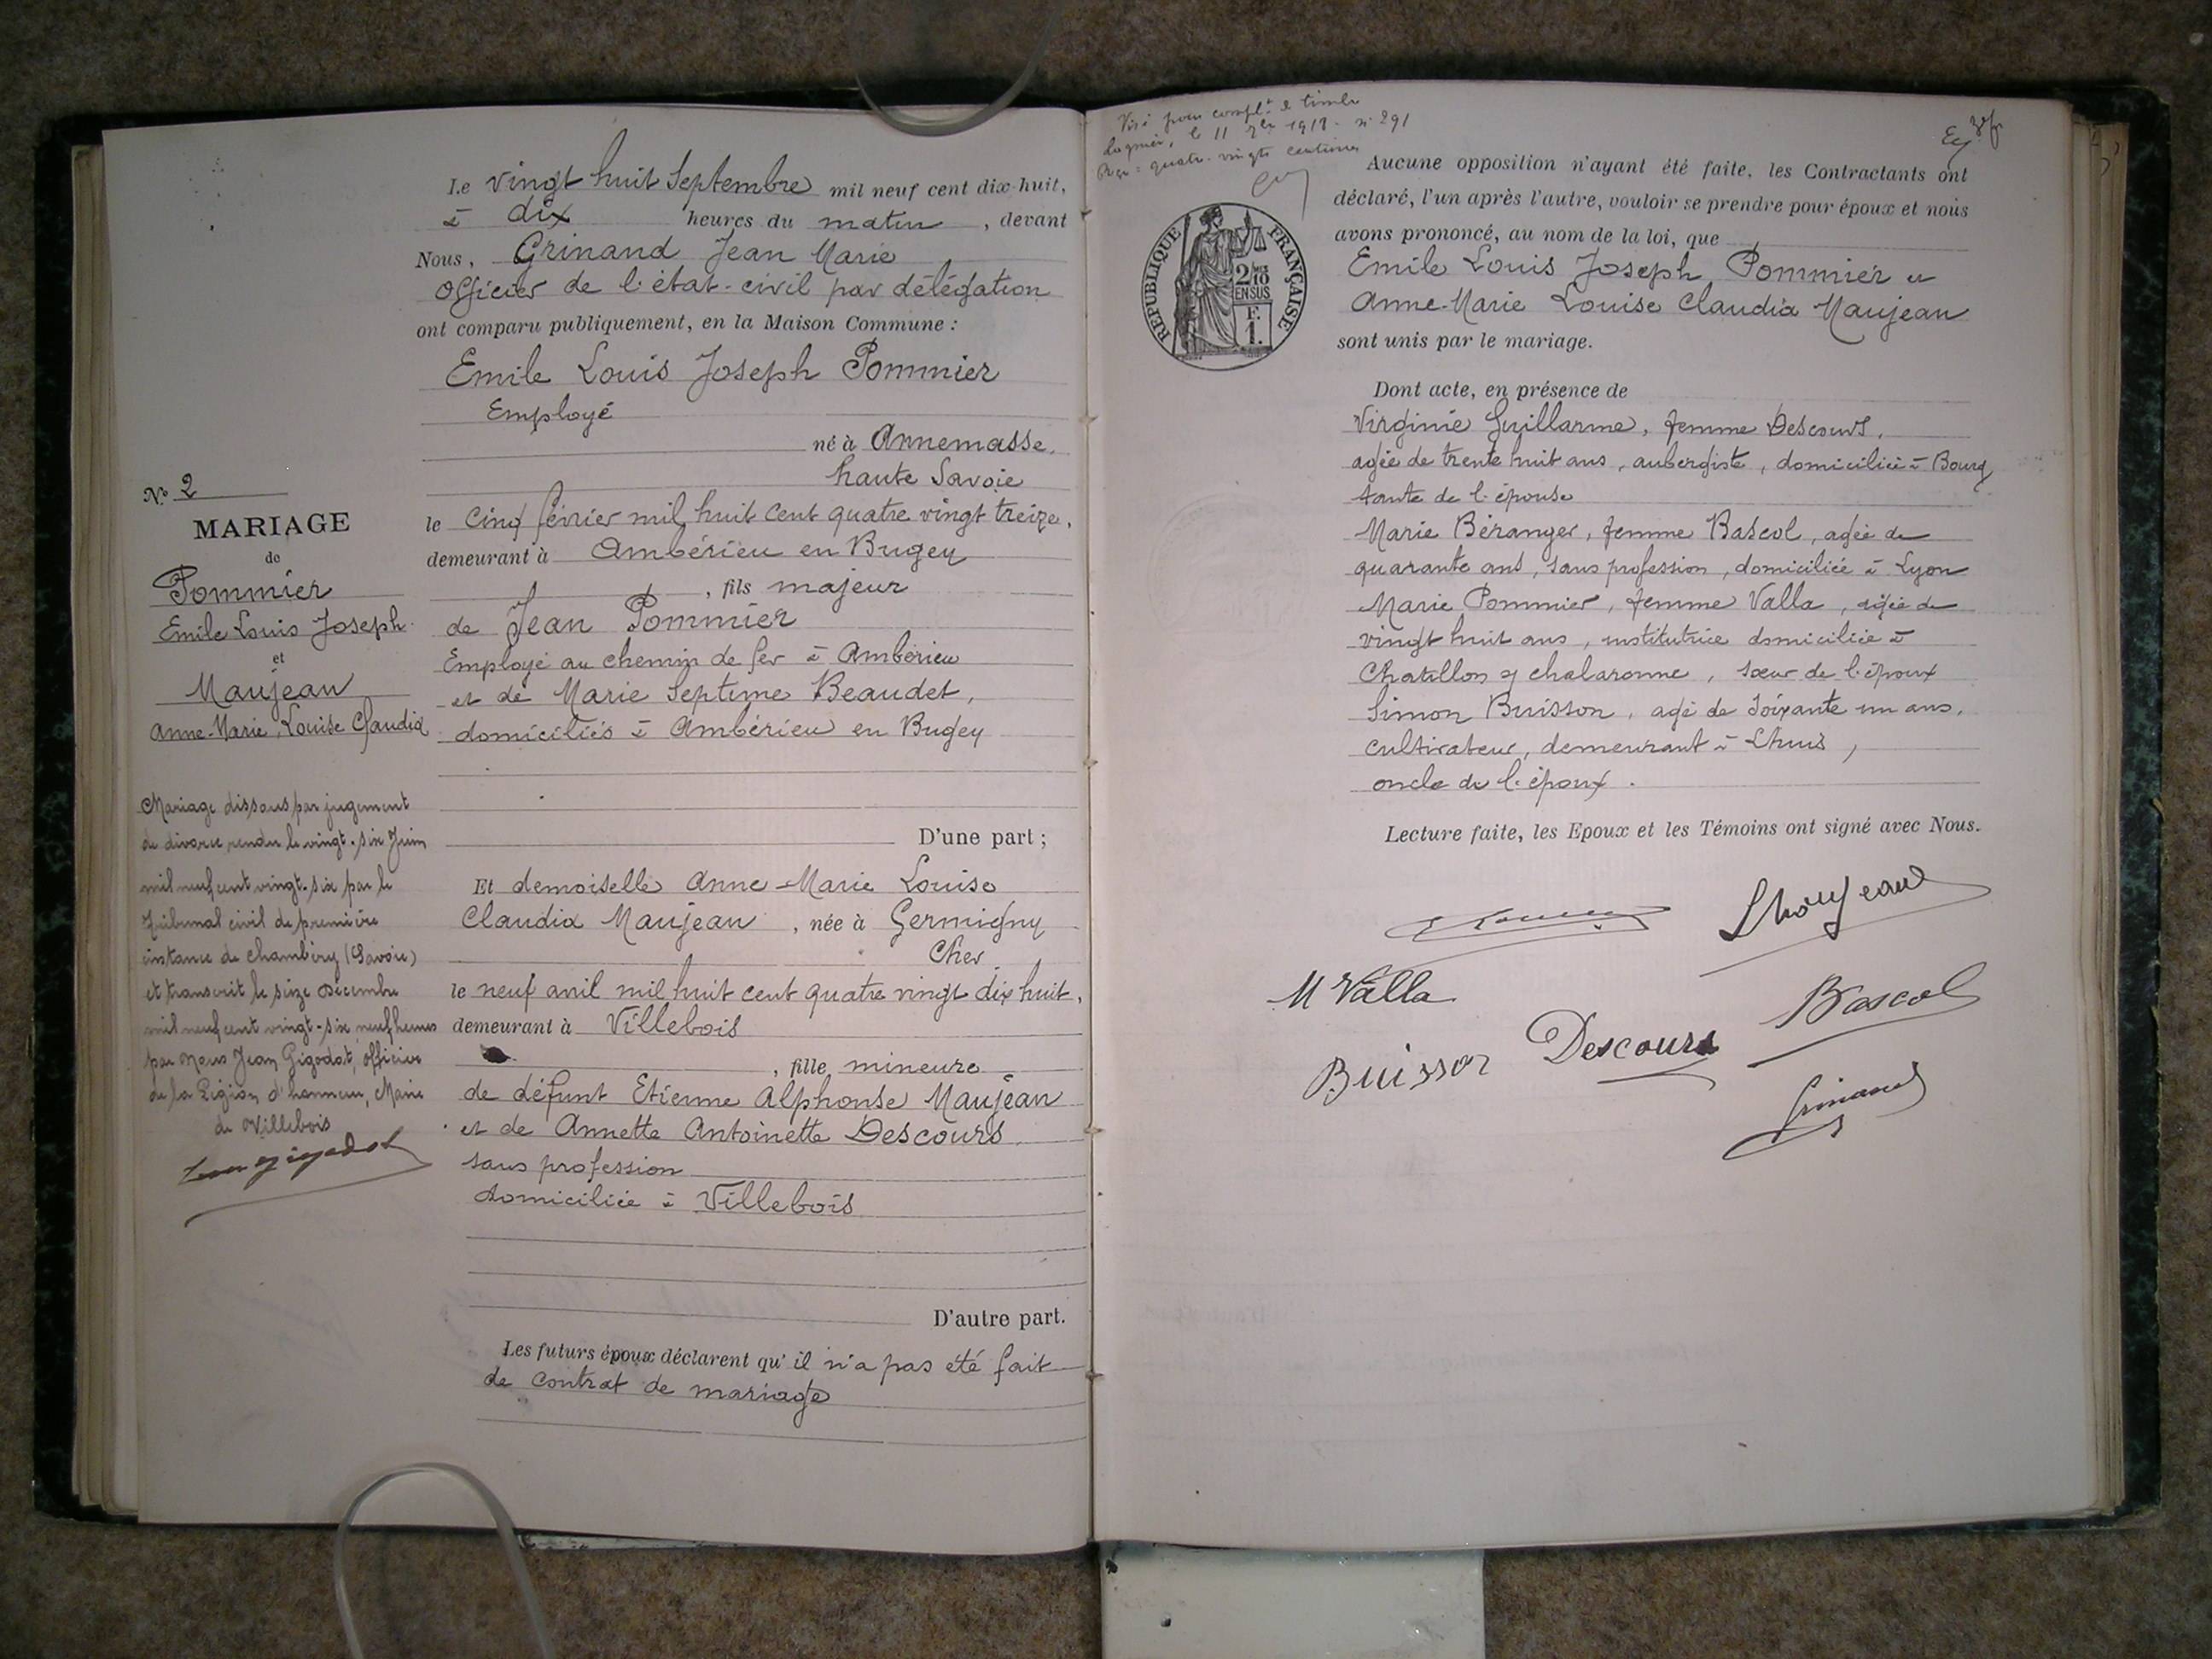 Le vingt huit Septembre mil neuf cent dix-huit,
à dix heures du matin, devant
Nous, Grinand Jean Marie
Officier de l'état-civil par délégation
ont comparu publiquement, en la Maison Commune :
Emile Louis Joseph Pommier
Employé
né à Annemasse,
haute Savoie
le cinq février mil huit cent quatre vingt treize,
demeurant à Ambérieu en Bugey
, fils majeur
de Jean Pommier
Employé au chemin de fer à Ambérieu
et de Marie Septime Beaudet,
domiciliés à Ambérieu en Bugey
D'une part ;
Et demoiselle Anne-Marie Louise
Claudia Maujean, née à Germigny
Cher
le neuf avril mil huit cent quatre vingt dix huit,
demeurant à Villebois
, fille mineure
de défunt Etienne Alphonse Maujean
et de Annette Antoinette Descours
sans profession
domiciliée à Villebois
D'autre part.
Les futurs époux déclarent qu'il n'a pas été fait
de contrat de mariage
N° 2
MARIAGE
de
Pommier
Emile Louis Joseph
et
Maujean
Anne-Marie, Louise Claudia
Mariage dissous par jugement
de divorce rendu le vingt-six Juin
mil neuf cent vingt-six par le
Tribunal civil de première
instance de Chambéry (Savoie)
et transcrit le seize Décembre
mil neuf cent vingt-six neuf heures
par Nous Jean Gigodot, officier
de la Légion d'honneur, Maire
de Villebois
Jean Gigodot
Visé pour complt de timbre
Lagnieu, le 11 1918 - n° 291
Reçu = quatre-vingts centimes
RÉPUBLIQUE FRANÇAISE
2/10
EN SUS
F.
1.
Aucune opposition n'ayant été faite, les Contractants ont
déclaré, l'un après l'autre, vouloir se prendre pour époux et nous
avons prononcé, au nom de la loi, que
Emile Louis Joseph Pommier et
Anne-Marie Louise Claudia Maujean
sont unis par le mariage.
Dont acte, en présence de
Virginie Guillarme, femme Descours,
agée de trente huit ans, aubergiste, domiciliée à Bourg
tante de l'épouse
Marie Béranger, femme Bascol, agée de
quarante ans, sans profession, domiciliée à Lyon
Marie Pommier, femme Valla, agée de
vingt huit ans, institutrice domiciliée à
Chatillon s/ chalaronne, sœur de l'époux
Simon Buisson, agé de soixante un ans,
cultivateur, demeurant à Lhuis,
oncle de l'époux.
Lecture faite, les Epoux et les Témoins ont signé avec Nous.
LMaujean
M Valla
Bascol
Buisson
Descours
Grinand